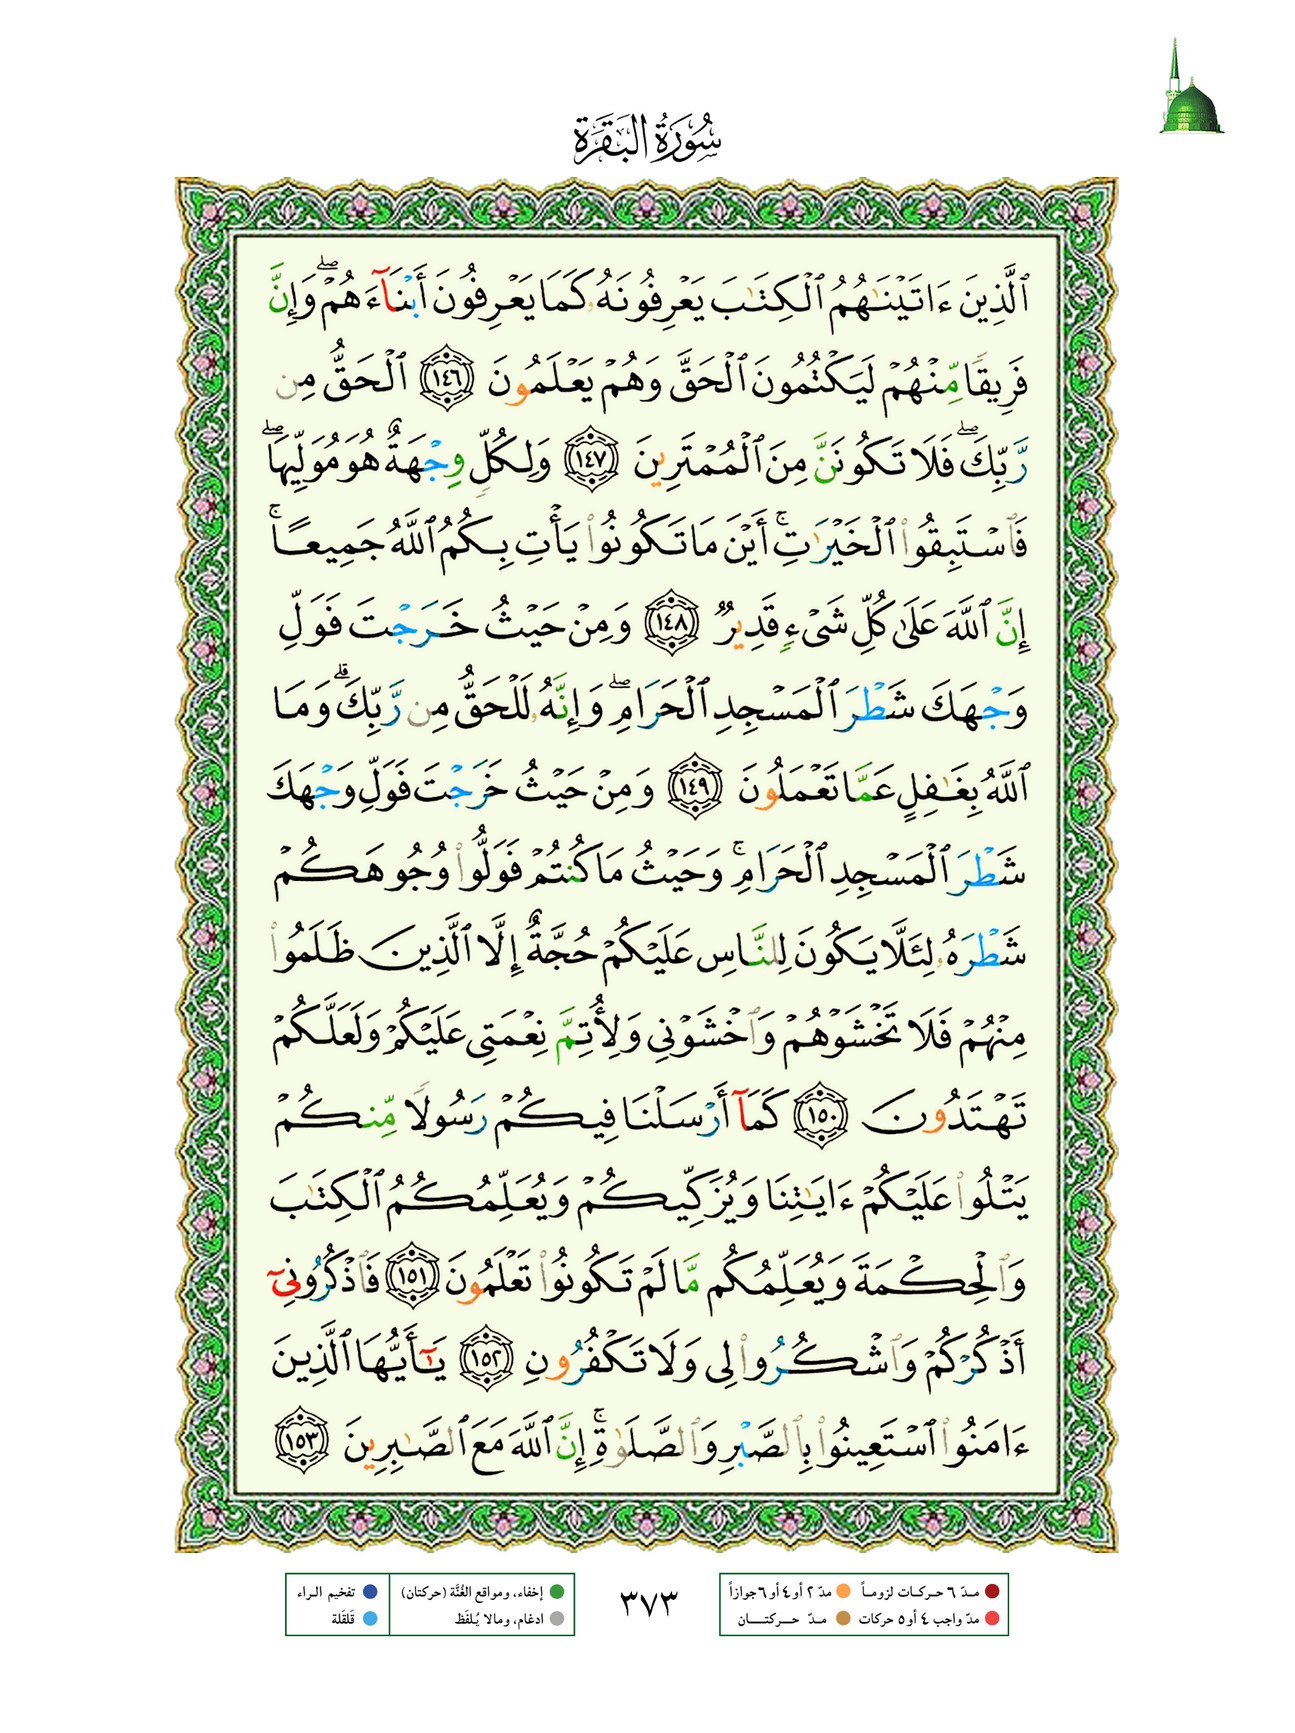 سُورَةُ البَقَرَةِ
ٱلَّذِينَ ءَاتَيۡنَٰهُمُ ٱلۡكِتَٰبَ يَعۡرِفُونَهُۥ كَمَا يَعۡرِفُونَ أَبۡنَآءَهُمۡۖ وَإِنَّ
فَرِيقٗا مِّنۡهُمۡ لَيَكۡتُمُونَ ٱلۡحَقَّ وَهُمۡ يَعۡلَمُونَ ١٤٦ ٱلۡحَقُّ مِن
رَّبِّكَۖ فَلَا تَكُونَنَّ مِنَ ٱلۡمُمۡتَرِينَ ١٤٧ وَلِكُلّٖ وِجۡهَةٌ هُوَ مُوَلِّيهَاۖ
فَٱسۡتَبِقُواْ ٱلۡخَيۡرَٰتِۚ أَيۡنَ مَا تَكُونُواْ يَأۡتِ بِكُمُ ٱللَّهُ جَمِيعًاۚ
إِنَّ ٱللَّهَ عَلَىٰ كُلِّ شَيۡءٖ قَدِيرٞ ١٤٨ وَمِنۡ حَيۡثُ خَرَجۡتَ فَوَلِّ
وَجۡهَكَ شَطۡرَ ٱلۡمَسۡجِدِ ٱلۡحَرَامِۖ وَإِنَّهُۥ لَلۡحَقُّ مِن رَّبِّكَۗ وَمَا
ٱللَّهُ بِغَٰفِلٍ عَمَّا تَعۡمَلُونَ ١٤٩ وَمِنۡ حَيۡثُ خَرَجۡتَ فَوَلِّ وَجۡهَكَ
شَطۡرَ ٱلۡمَسۡجِدِ ٱلۡحَرَامِۚ وَحَيۡثُ مَا كُنتُمۡ فَوَلُّواْ وُجُوهَكُمۡ
شَطۡرَهُۥ لِئَلَّا يَكُونَ لِلنَّاسِ عَلَيۡكُمۡ حُجَّةٌ إِلَّا ٱلَّذِينَ ظَلَمُواْ
مِنۡهُمۡ فَلَا تَخۡشَوۡهُمۡ وَٱخۡشَوۡنِي وَلِأُتِمَّ نِعۡمَتِي عَلَيۡكُمۡ وَلَعَلَّكُمۡ
تَهۡتَدُونَ ١٥٠ كَمَآ أَرۡسَلۡنَا فِيكُمۡ رَسُولٗا مِّنكُمۡ
يَتۡلُواْ عَلَيۡكُمۡ ءَايَٰتِنَا وَيُزَكِّيكُمۡ وَيُعَلِّمُكُمُ ٱلۡكِتَٰبَ
وَٱلۡحِكۡمَةَ وَيُعَلِّمُكُم مَّا لَمۡ تَكُونُواْ تَعۡلَمُونَ ١٥١ فَٱذۡكُرُونِيٓ
أَذۡكُرۡكُمۡ وَٱشۡكُرُواْ لِي وَلَا تَكۡفُرُونِ ١٥٢ يَٰٓأَيُّهَا ٱلَّذِينَ
ءَامَنُواْ ٱسۡتَعِينُواْ بِٱلصَّبۡرِ وَٱلصَّلَوٰةِۚ إِنَّ ٱللَّهَ مَعَ ٱلصَّٰبِرِينَ ١٥٣
مدّ ٦ حركات لزوماً مدّ ٢ أو ٤ أو ٦ جوازاً
مدّ واجب ٤ أو ٥ حركات مدّ حركتان
٣٧٣
إخفاء، ومواقع الغُنَّة (حركتان) تفخيم الراء
ادغام، ومالا يُلفَظ قَلقَلة